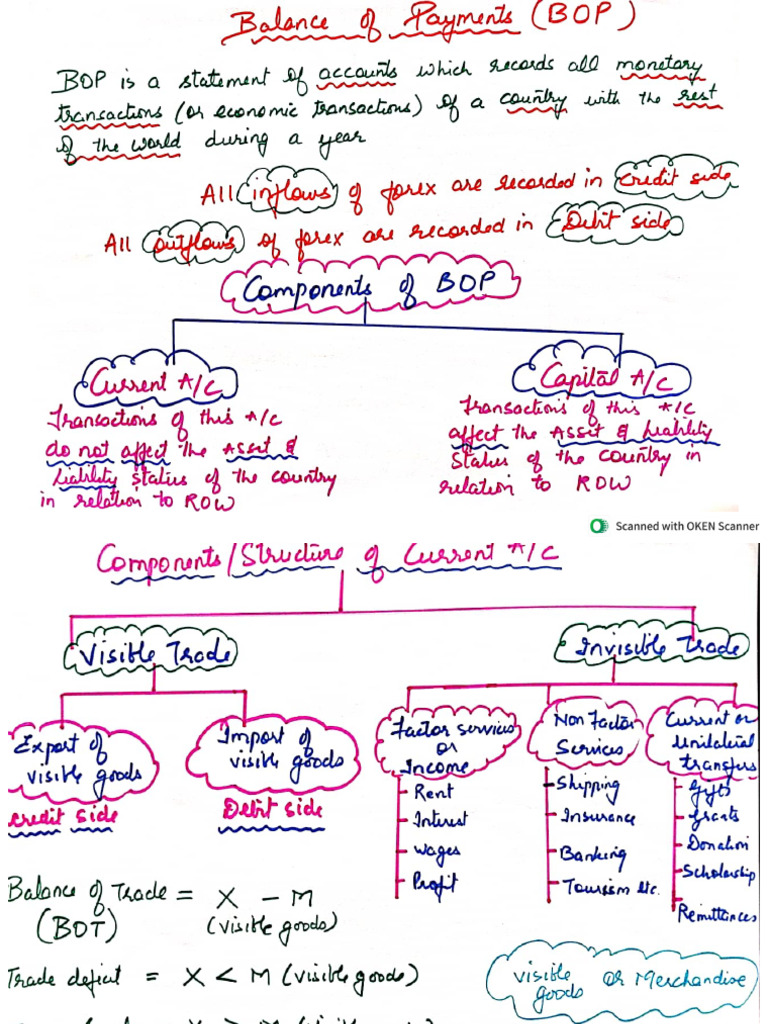 Balance of Payments (BOP)
BOP is a statement of accounts which records all monetary
transactions (or economic transactions) of a country with the rest
of the world during a year
All inflows of forex are recorded in credit side
All outflows of forex are recorded in Debit side
Components of BOP
Current A/C
Transactions of this A/C
do not affect the Asset &
Liability status of the country
in relation to ROW
Capital A/C
Transactions of this A/C
affect the Asset & Liability
Status of the country in
relation to ROW
Scanned with OKEN Scanner
Components/Structure of Current A/C
Visible Trade
Invisible Trade
Export of
visible goods
credit side
Import of
visible goods
Debit side
Factor services
or
Income
Rent
Interest
Wages
Profit
Non Factor
Services
Shipping
Insurance
Banking
Tourism etc.
Current or
Unilateral
transfers
Gifts
Grants
Donation
Scholarship
Remittances
Balance of Trade = X - M
(BOT) (visible goods)
Trade deficit = X < M (visible goods)
visible goods or Merchandise